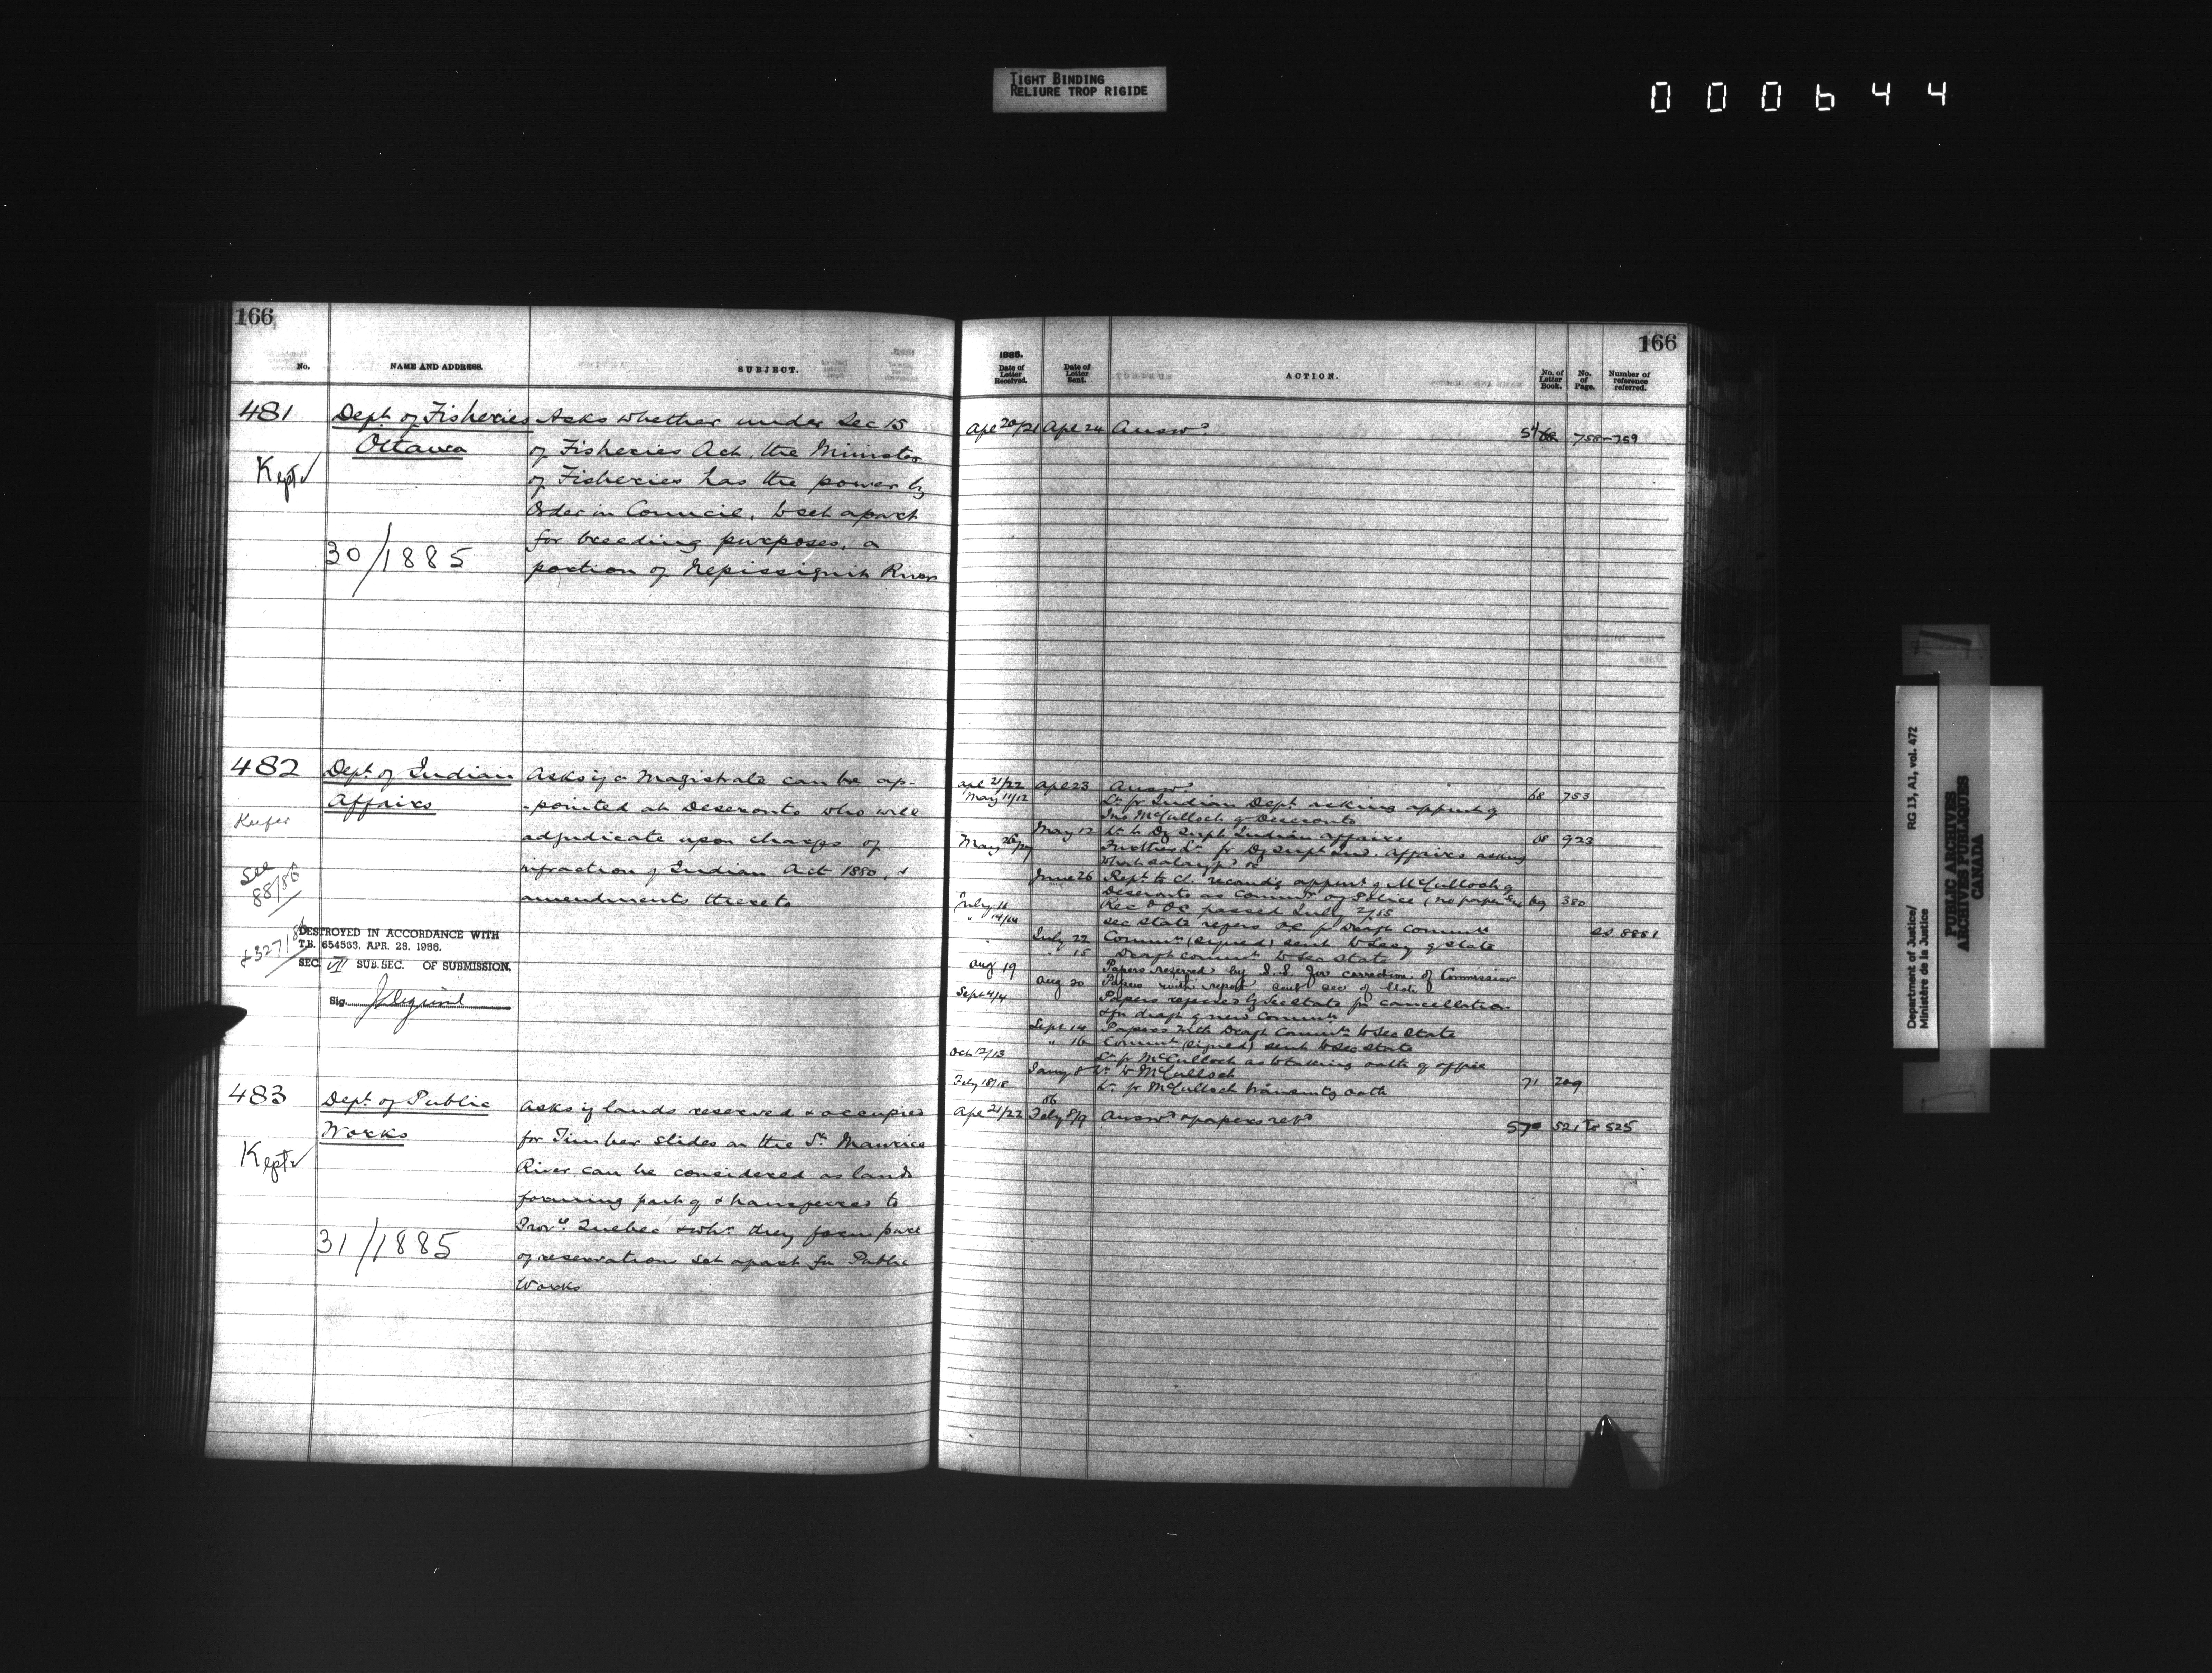 TIGHT BINDING
RELIURE TROP RIGIDE
000644
166
No.
NAME AND ADDRESS.
SUBJECT.
481
Dept. of Fisheries
Ottawa
Kept
30/1885
Asks whether under Sec 15
of Fisheries Act, the Minister
of Fisheries has the power by
Order in Council, to set apart
for breeding purposes, a
portion of Nepissiguit River
482
Dept. of Indian
Affairs
Keefer
See
88/86
DESTROYED IN ACCORDANCE WITH
T.B. 654563, APR. 28, 1966.
SEC. VII SUB.SEC. OF SUBMISSION.
Sig.
Asks if a Magistrate can be ap-
-pointed at Deseronto who will
adjudicate upon charges of
infraction of Indian Act 1880, &
amendments thereto
483
Dept. of Public
Works
Kept
31/1885
Asks if lands reserved & occupied
for Timber slides on the St. Maurice
River can be considered as lands
forming part of & transferred to
Provce Quebec & whr. they form part
of reservation set apart for Public
Works
166
1885.
Date of Letter Received.
Date of Letter Sent.
ACTION.
No. of Letter Book.
No. of Page.
Number of reference referred.
Apl 20/21 Apl 24 Answd 758-759
Apl 21/22 Apl 23 Answd 68 753
May 11/12 Lr. fr Indian Dept. asking appmt of
Jno McCulloch of Deseronto
May 12 Lr. to Dy Supt Indian Affairs 68 923
May Another Lr. fr Dy Supt Ind. Affairs asking
what salary
June 26 Rept. to Cl. recomdg appmt of McCulloch of
Deseronto as Commr of Police (no papers) 69 380
July 14 Recd OC passed July 2/85
" 14/14 Sec State refers OC for Draft Commn SS 8881
July 22 Commn (signed) sent to Secy of State
" 15 Draft commn to Sec State
Aug 19 Papers returned by S.S. for correction of Commission
Aug 20 Papers with report sent Sec of State
Sept 4/4 Papers referred by Sec State for cancellation
& for draft of new Commn
Sept 14 Papers with Draft Commn to Sec State
" 16 Commn (signed) sent to Sec State
Oct 12/13 Lr. fr McCulloch as to taking oath of office
Jany 8 Lr. to McCulloch 71 209
Feby 18/18 Lr. fr McCulloch transmtg oath
Apl 21/22 Feby 8/9 86 Answd & papers retd 521 to 525
Department of Justice/
Ministère de la Justice
RG 13, A1, vol. 472
PUBLIC ARCHIVES
ARCHIVES PUBLIQUES
CANADA